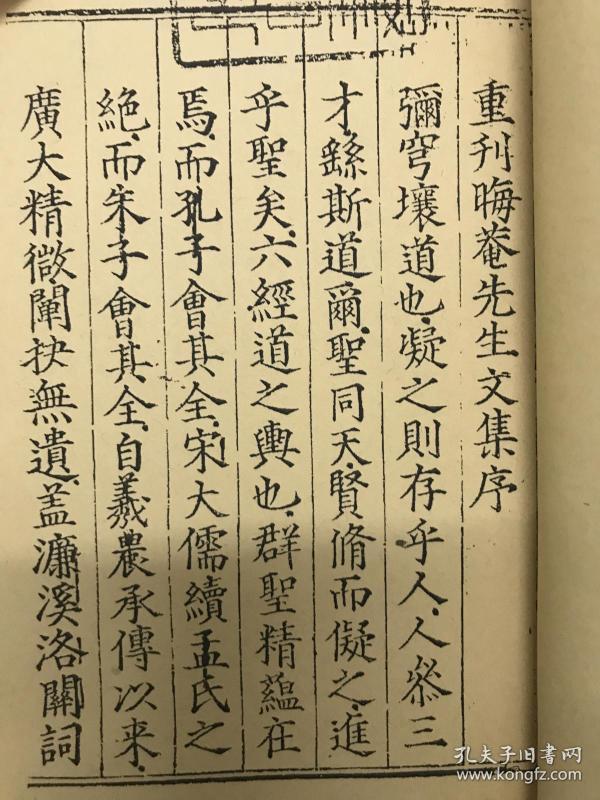 重刋晦菴先生文集序
彌穹壤道也凝之則存乎人人叅三
才繇斯道爾聖同天賢脩而儗之進
乎聖矣六經道之輿也群聖精蘊在
焉而孔子會其全宋大儒續孟氏之
絶而朱子會其全自羲農承傳以来
廣大精微闡抉無遺盖濂溪洛關詞
孔夫子旧书网
www.kongfz.com